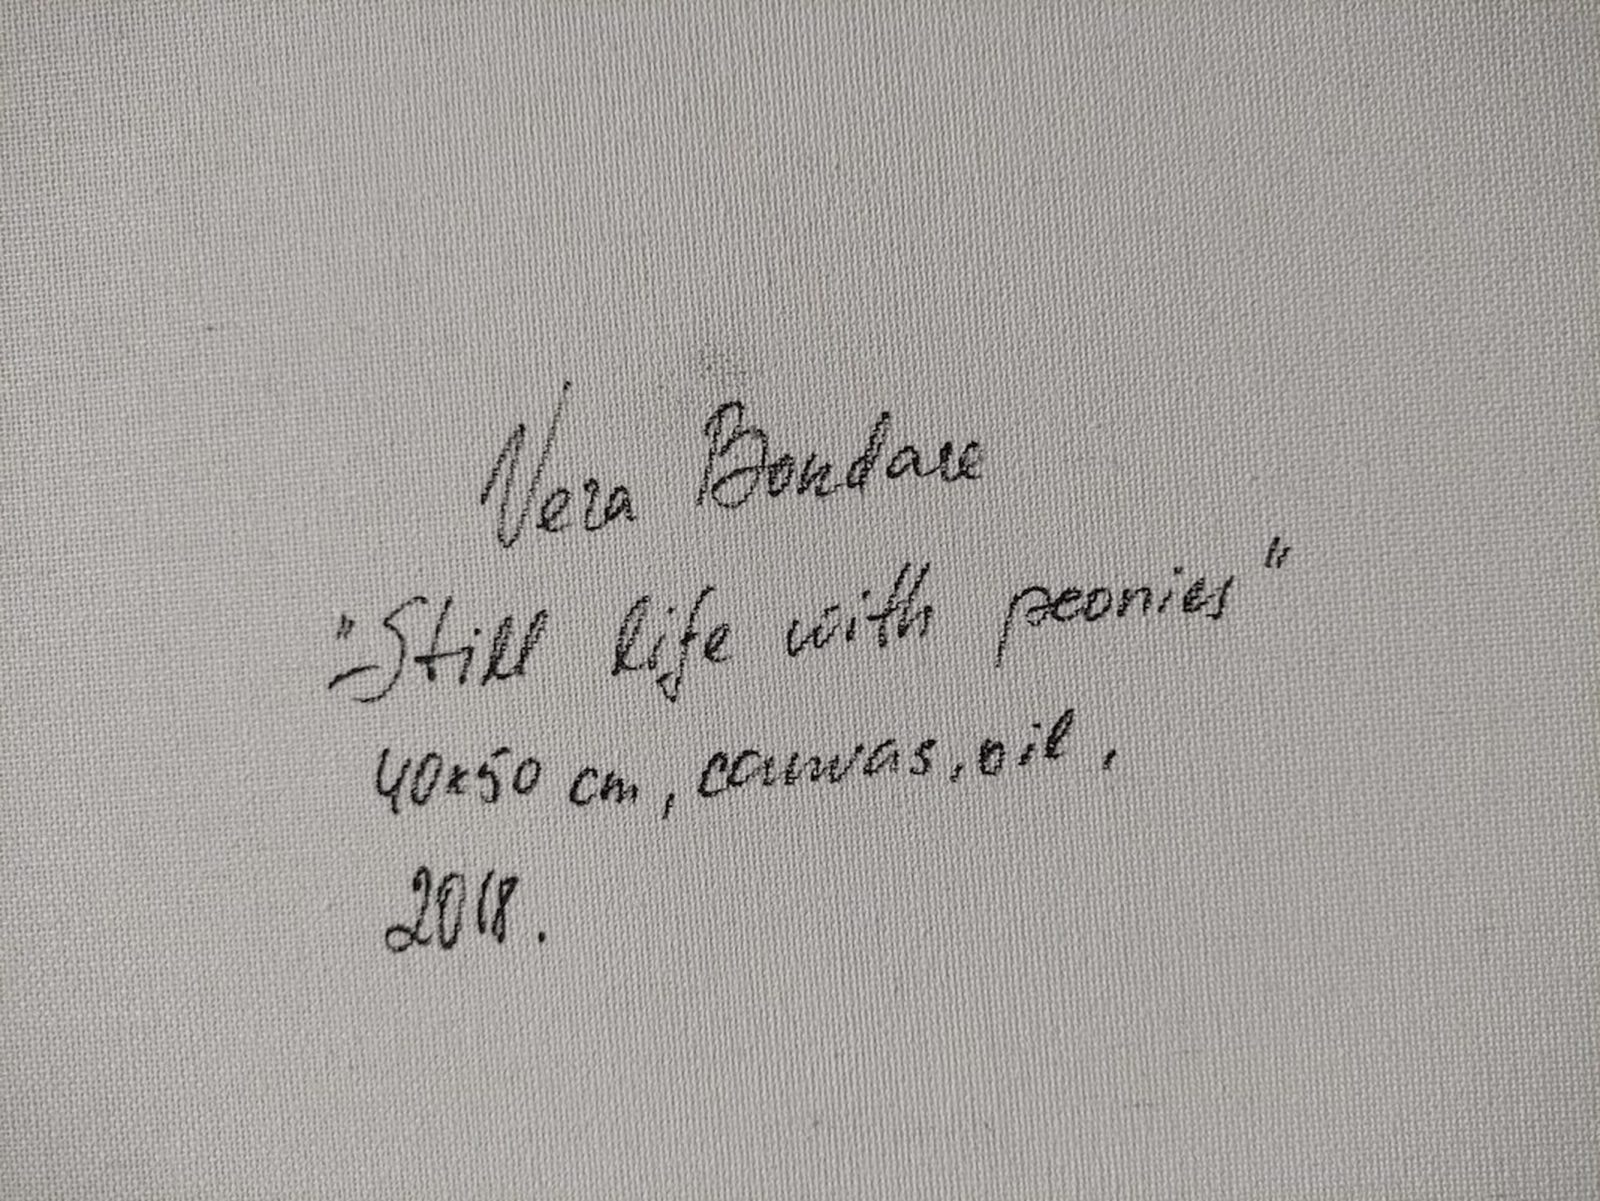 Vera Bondare
"Still life with peonies"
40x50 cm, canvas, oil,
2018.